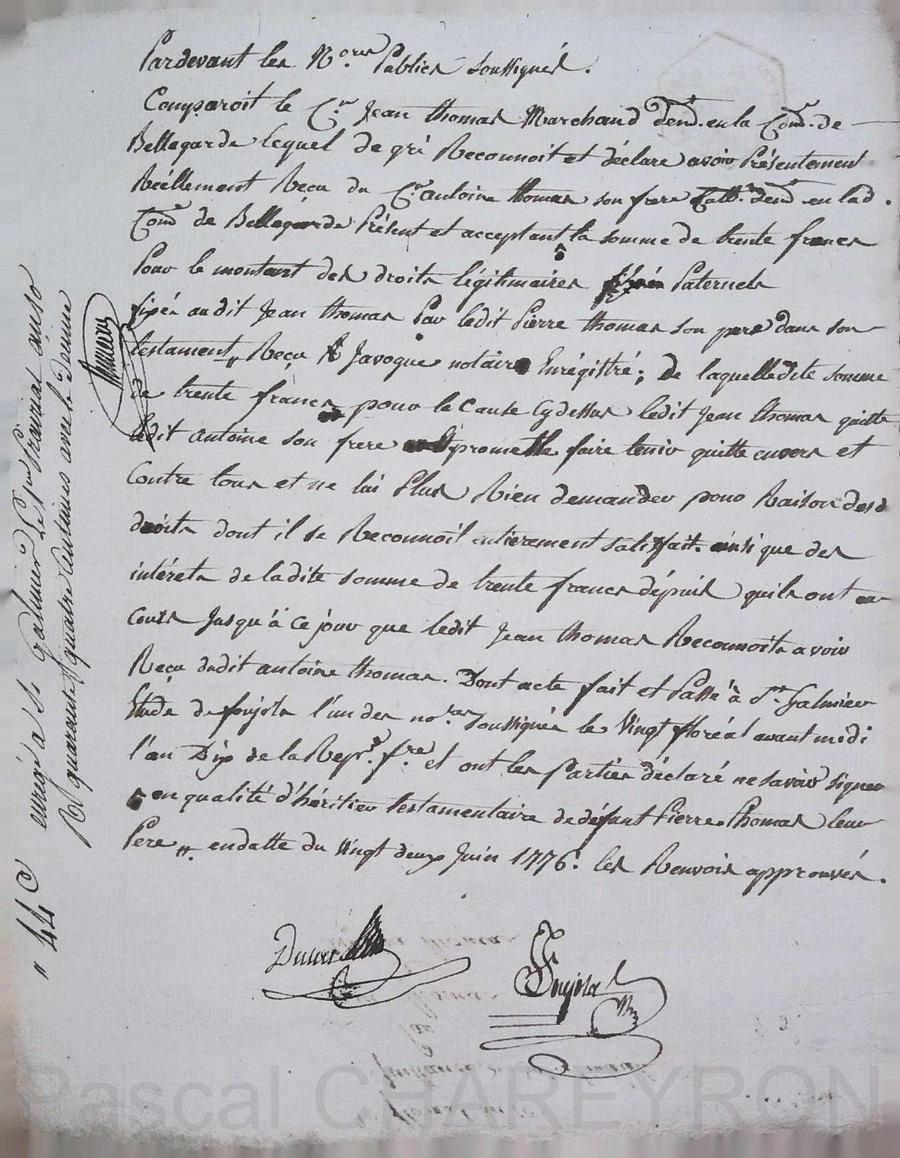 Pardevant les N.ores Publics soussignés.
Comparoit le C.en Jean thomas Marchand dem.t en la Com.e de
Bellegarde lequel de gré Reconnoit et déclare avoir Présentement
Réellement Reçu du C.en antoine thomas son frere dem.t en lad.
Com.e de Bellegarde Présent et acceptant la somme de trente francs
Pour le montant des droits légitimaires Paternels
fixés audit Jean thomas Par ledit Pierre thomas son pere dans son
testament „ Reçu Javogue notaire Enrégistré; De laquelledite somme
de trente francs pour le Cause Cydessus ledit Jean thomas quitte
ledit antoine son frere promet le faire tenir quitte envers et
Contre tous et ne lui Plus Rien demander pour Raison desd
droits dont il se Reconnoit entierement satisfait ainsi que des
intérets de ladite somme de trente francs dépuis quils ont en
cours Jusqu'à ce jour que ledit Jean thomas Reconnoit avoir
Reçu dudit antoine thomas. Dont acte fait et Passé à St. Galmier
Etude de foujols l'un des no.res soussignés le Vingt floréal avant midi
l'an Dix de la Rep.e f.se et ont les Parties déclaré ne savoir signer
en qualité d'héritier testamentaire de défunt Pierre Thomas leur
Pere „ en datte du Vingt deux Juin 1776. les Renvois approuvés.
Foujols
enregé a St Galmier le 1er Prairial an 10
R quarante quatre Centimes avec le décime
" 44 C
Pascal CHAREYRON